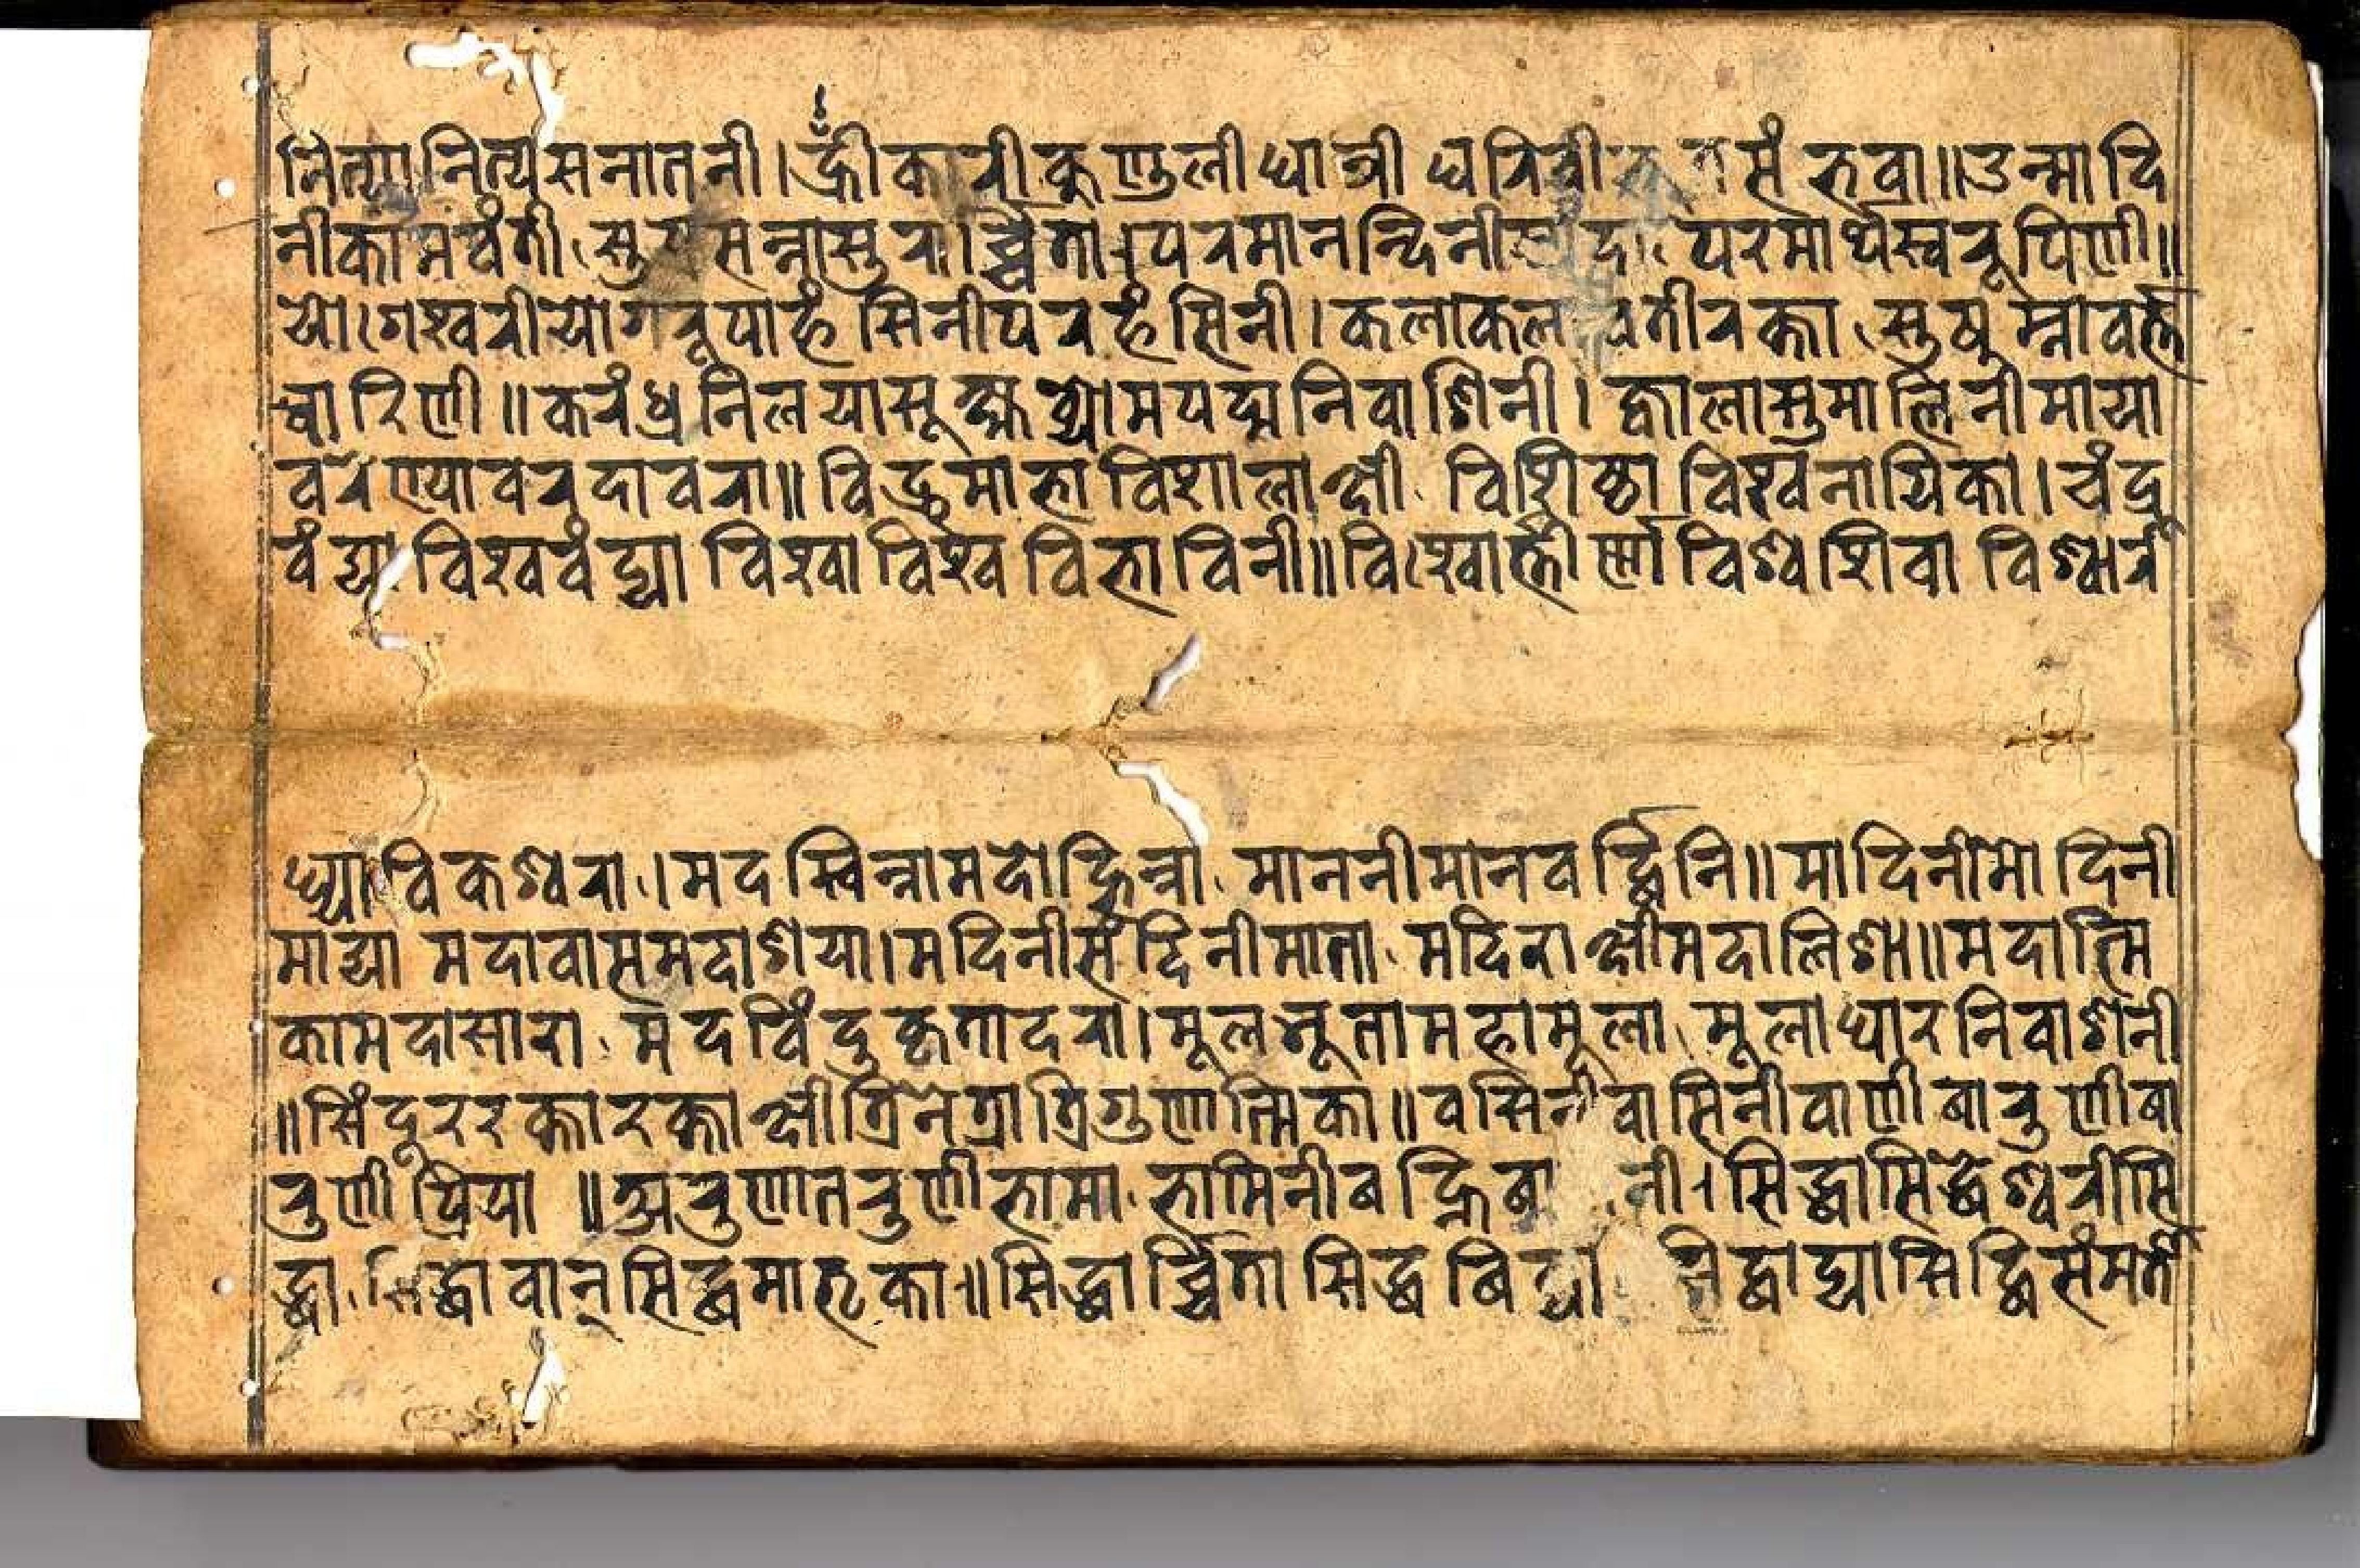 नित्यानित्यसनातनी।ह्रींकारीकुण्डलीधात्री धरित्री संभवा॥उन्मादि
नीकामवंती सन्नासुरार्च्चिता।परमानन्दिनी परमार्थस्वरूपिणी॥
योगेश्वरीयोगरूपाहंसिनीपरहंसिनी।कलाकल वतीरक्ता सुषुम्नावर्त्त
चारिणी॥करंध्रनिलयासूक्ष्मव्योमपद्मनिवाशिनी। ज्वालासुमालिनीमाया
वरेण्यावरदावरा॥विद्रुमाभाविशालाक्षी विशिष्ठाविश्वनायिका।चंद्र
वंद्या विश्ववंद्या विश्वाविश्वविभाविनी॥विश्वार्त्तीर्ण्णाविश्वशिवा विश्वारा
ध्याविकश्वरा।मदखिन्नामदोद्भिन्ना माननीमानवर्द्धिनि॥मादिनीमोदिनी
माद्या मदावासमदाशया।मदिनीसंदिनीमाता मदिराक्षीमदालिशा॥मदात्मि
कामदासारा मदविंदुकृतादरा।मूलभूतामहामूला मूलाधारनिवाशिनी
॥सिंदूररक्तारक्ताक्षीत्रिनेत्रात्रिगुणात्मिका॥वसिनीवासिनीवाणीबारुणीबा
रुणीप्रिया॥अरुणातरुणीभामा भामिनीबह्निबा नी।सिद्धासिद्धेश्वरीसि
द्धा सिद्धावान्सिद्धमातृका॥सिद्धार्च्चितासिद्धबिद्या सिद्धाद्यासिद्धिसंमता